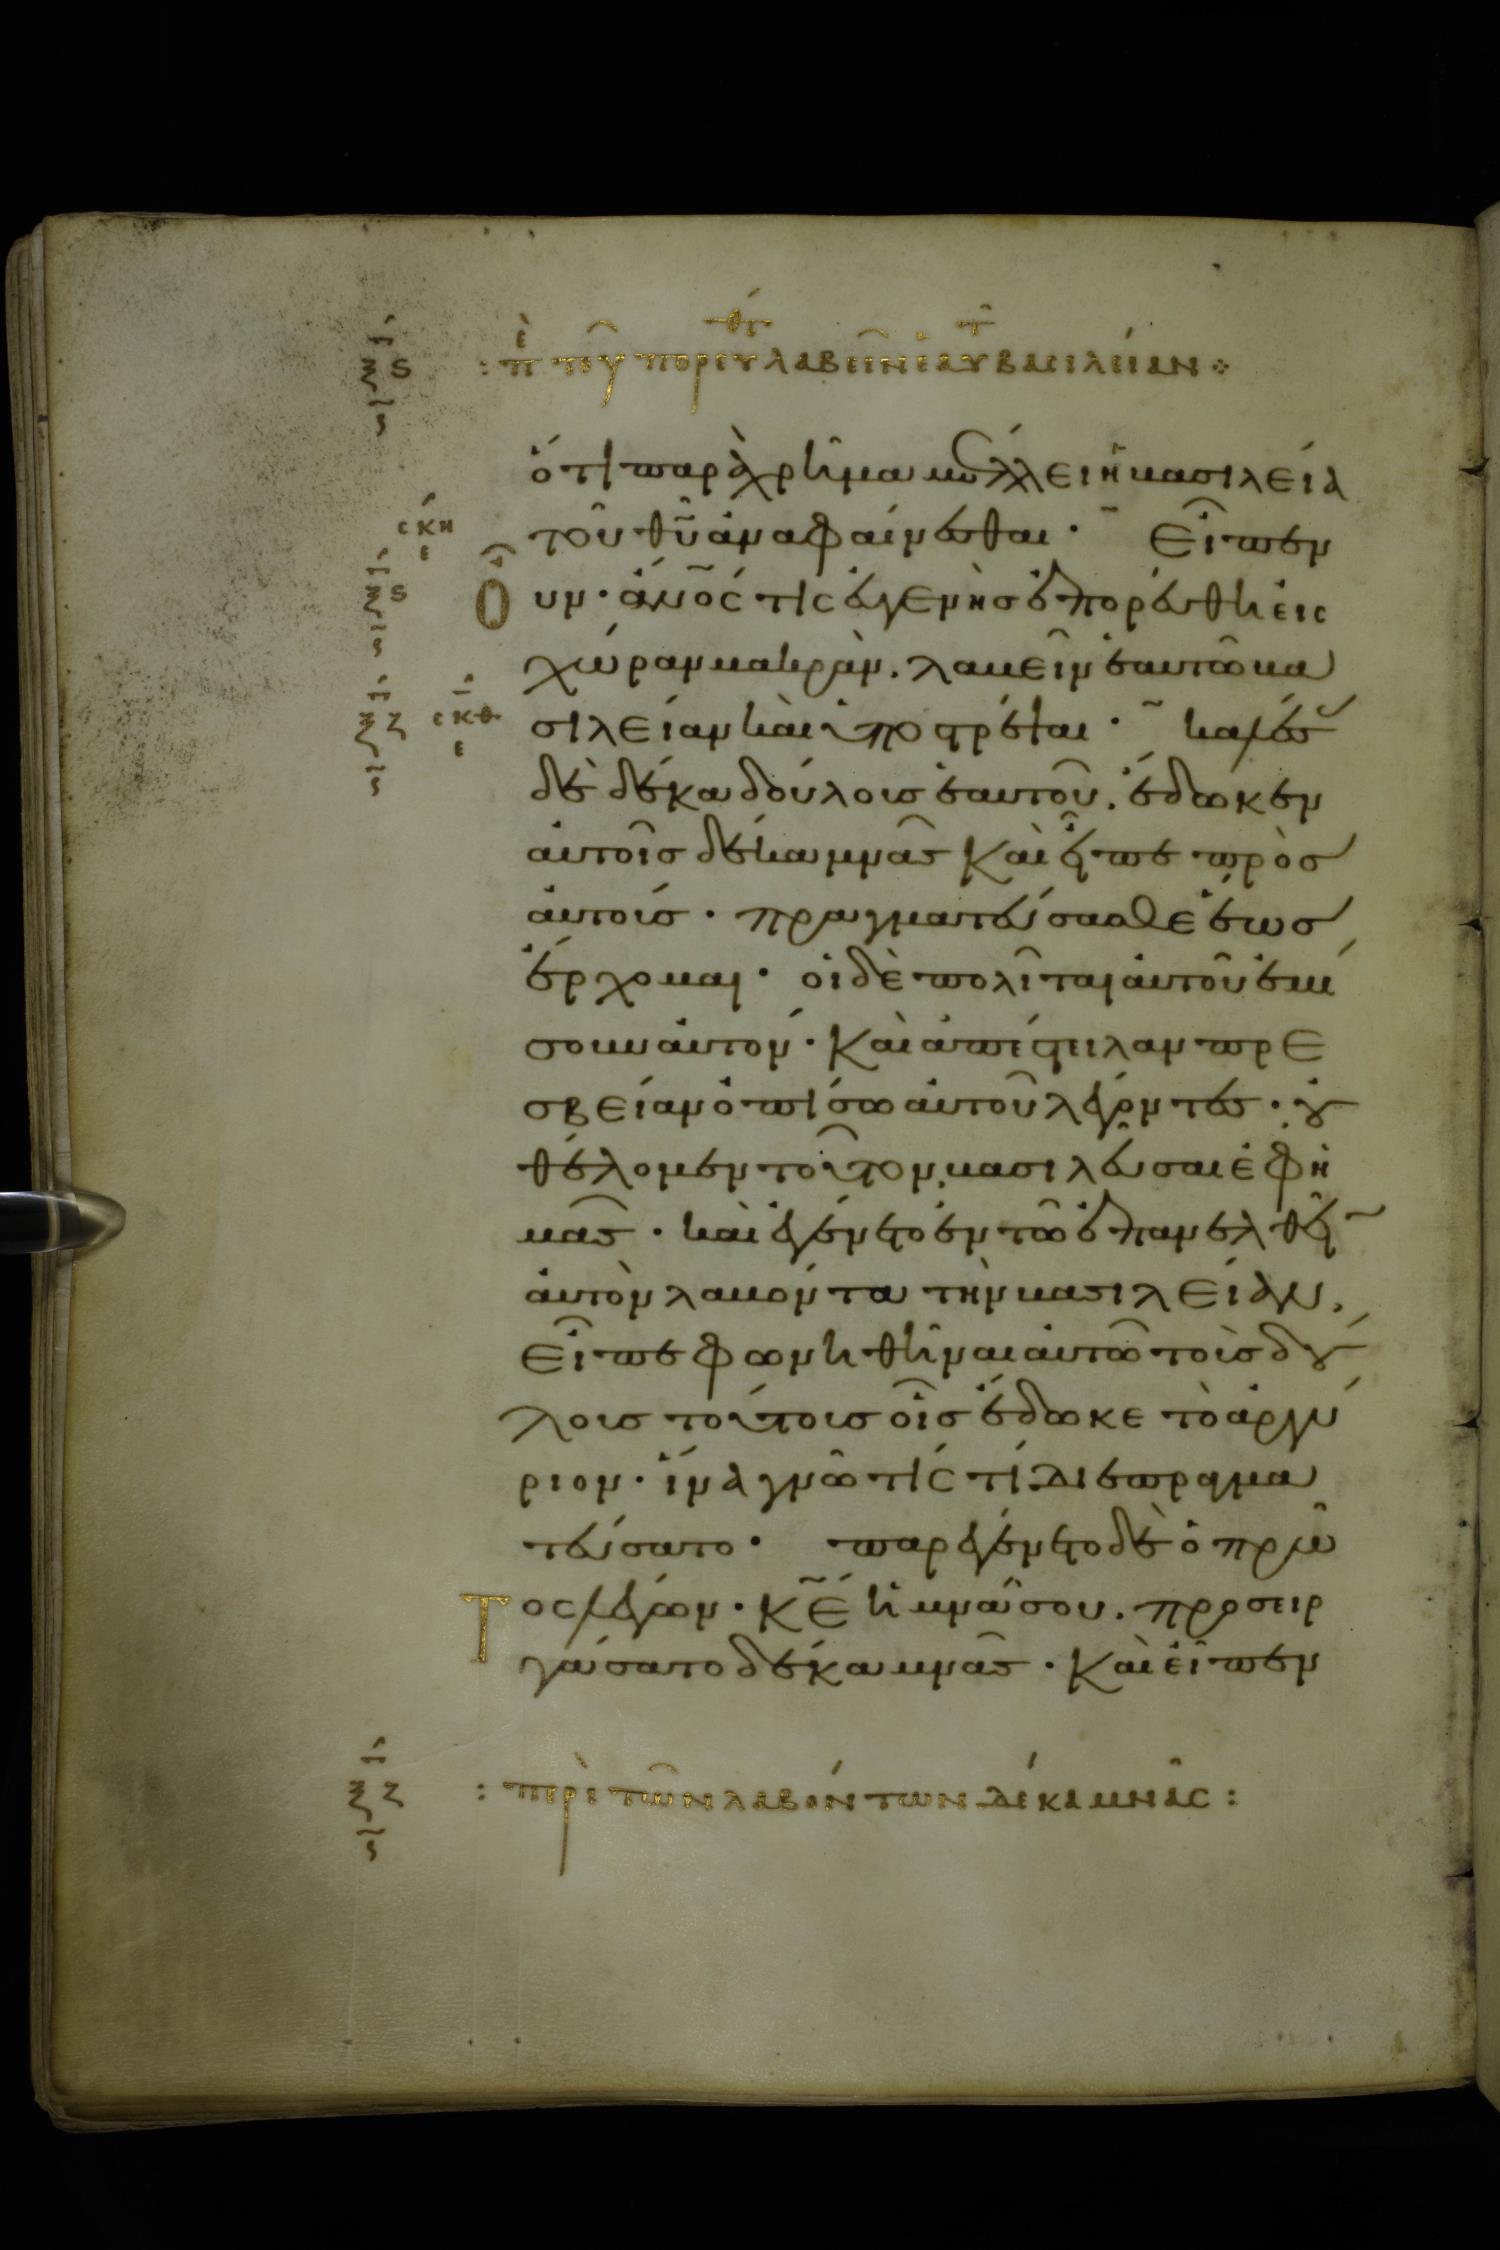 : πε τοῦ πορευθτ λαβεῖν ἑαυτ βασιλείαν :
ξς
ὅτι παραχρῆμα μέλλει ἡ βασιλεία
σκη
ε
τοῦ θῦ ἀναφαίνεσθαι · Εἶπεν
ξς
οὖν · ἄνο̅ς τίς εὐγενὴς ἐπορεύθη εἰς
χώραν μακρὰν . λαβεῖν ἑαυτῶ βα
ξζ σκθ
ε
σιλείαν καὶ ὑποστρέψαι · καλέσας
δὲ δέκα δούλους ἑαυτοῦ . ἔδωκεν
αὐτοῖς δέκα μνᾶς καὶ εἶπε πρὸς
αὐτούς · πραγματεύσασθε ἕως
ἔρχομαι · οἱ δὲ πολῖται αὐτοῦ ἐμί
σουν αὐτόν · καὶ ἀπέστειλαν πρε
σβείαν ὀπίσω αὐτοῦ λέγοντες · οὐ
θέλομεν τοῦτον βασιλεῦσαι ἐφ ἡ
μᾶς · καὶ ἐγένετο ἐν τῶ ἐπανελθεῖ̅
αὐτὸν λαβόντα τὴν βασιλείαν .
Εἶπε φωνηθῆναι αὐτῶ τοὺς δού
λους τούτους οἷς ἔδωκε τὸ ἀργύ
ριον · ἵνα γνῶ τίς τί διεπραγμα
τεύσατο · παρεγένετο δὲ ὁ πρῶ
Τος λέγων · κ̅ε ἡ μνᾶ σου . προσειρ
γάσατο δέκα μνᾶς · καὶ εἶπεν
ξζ
: περὶ τῶν λαβόντων δέκα μνᾶς :